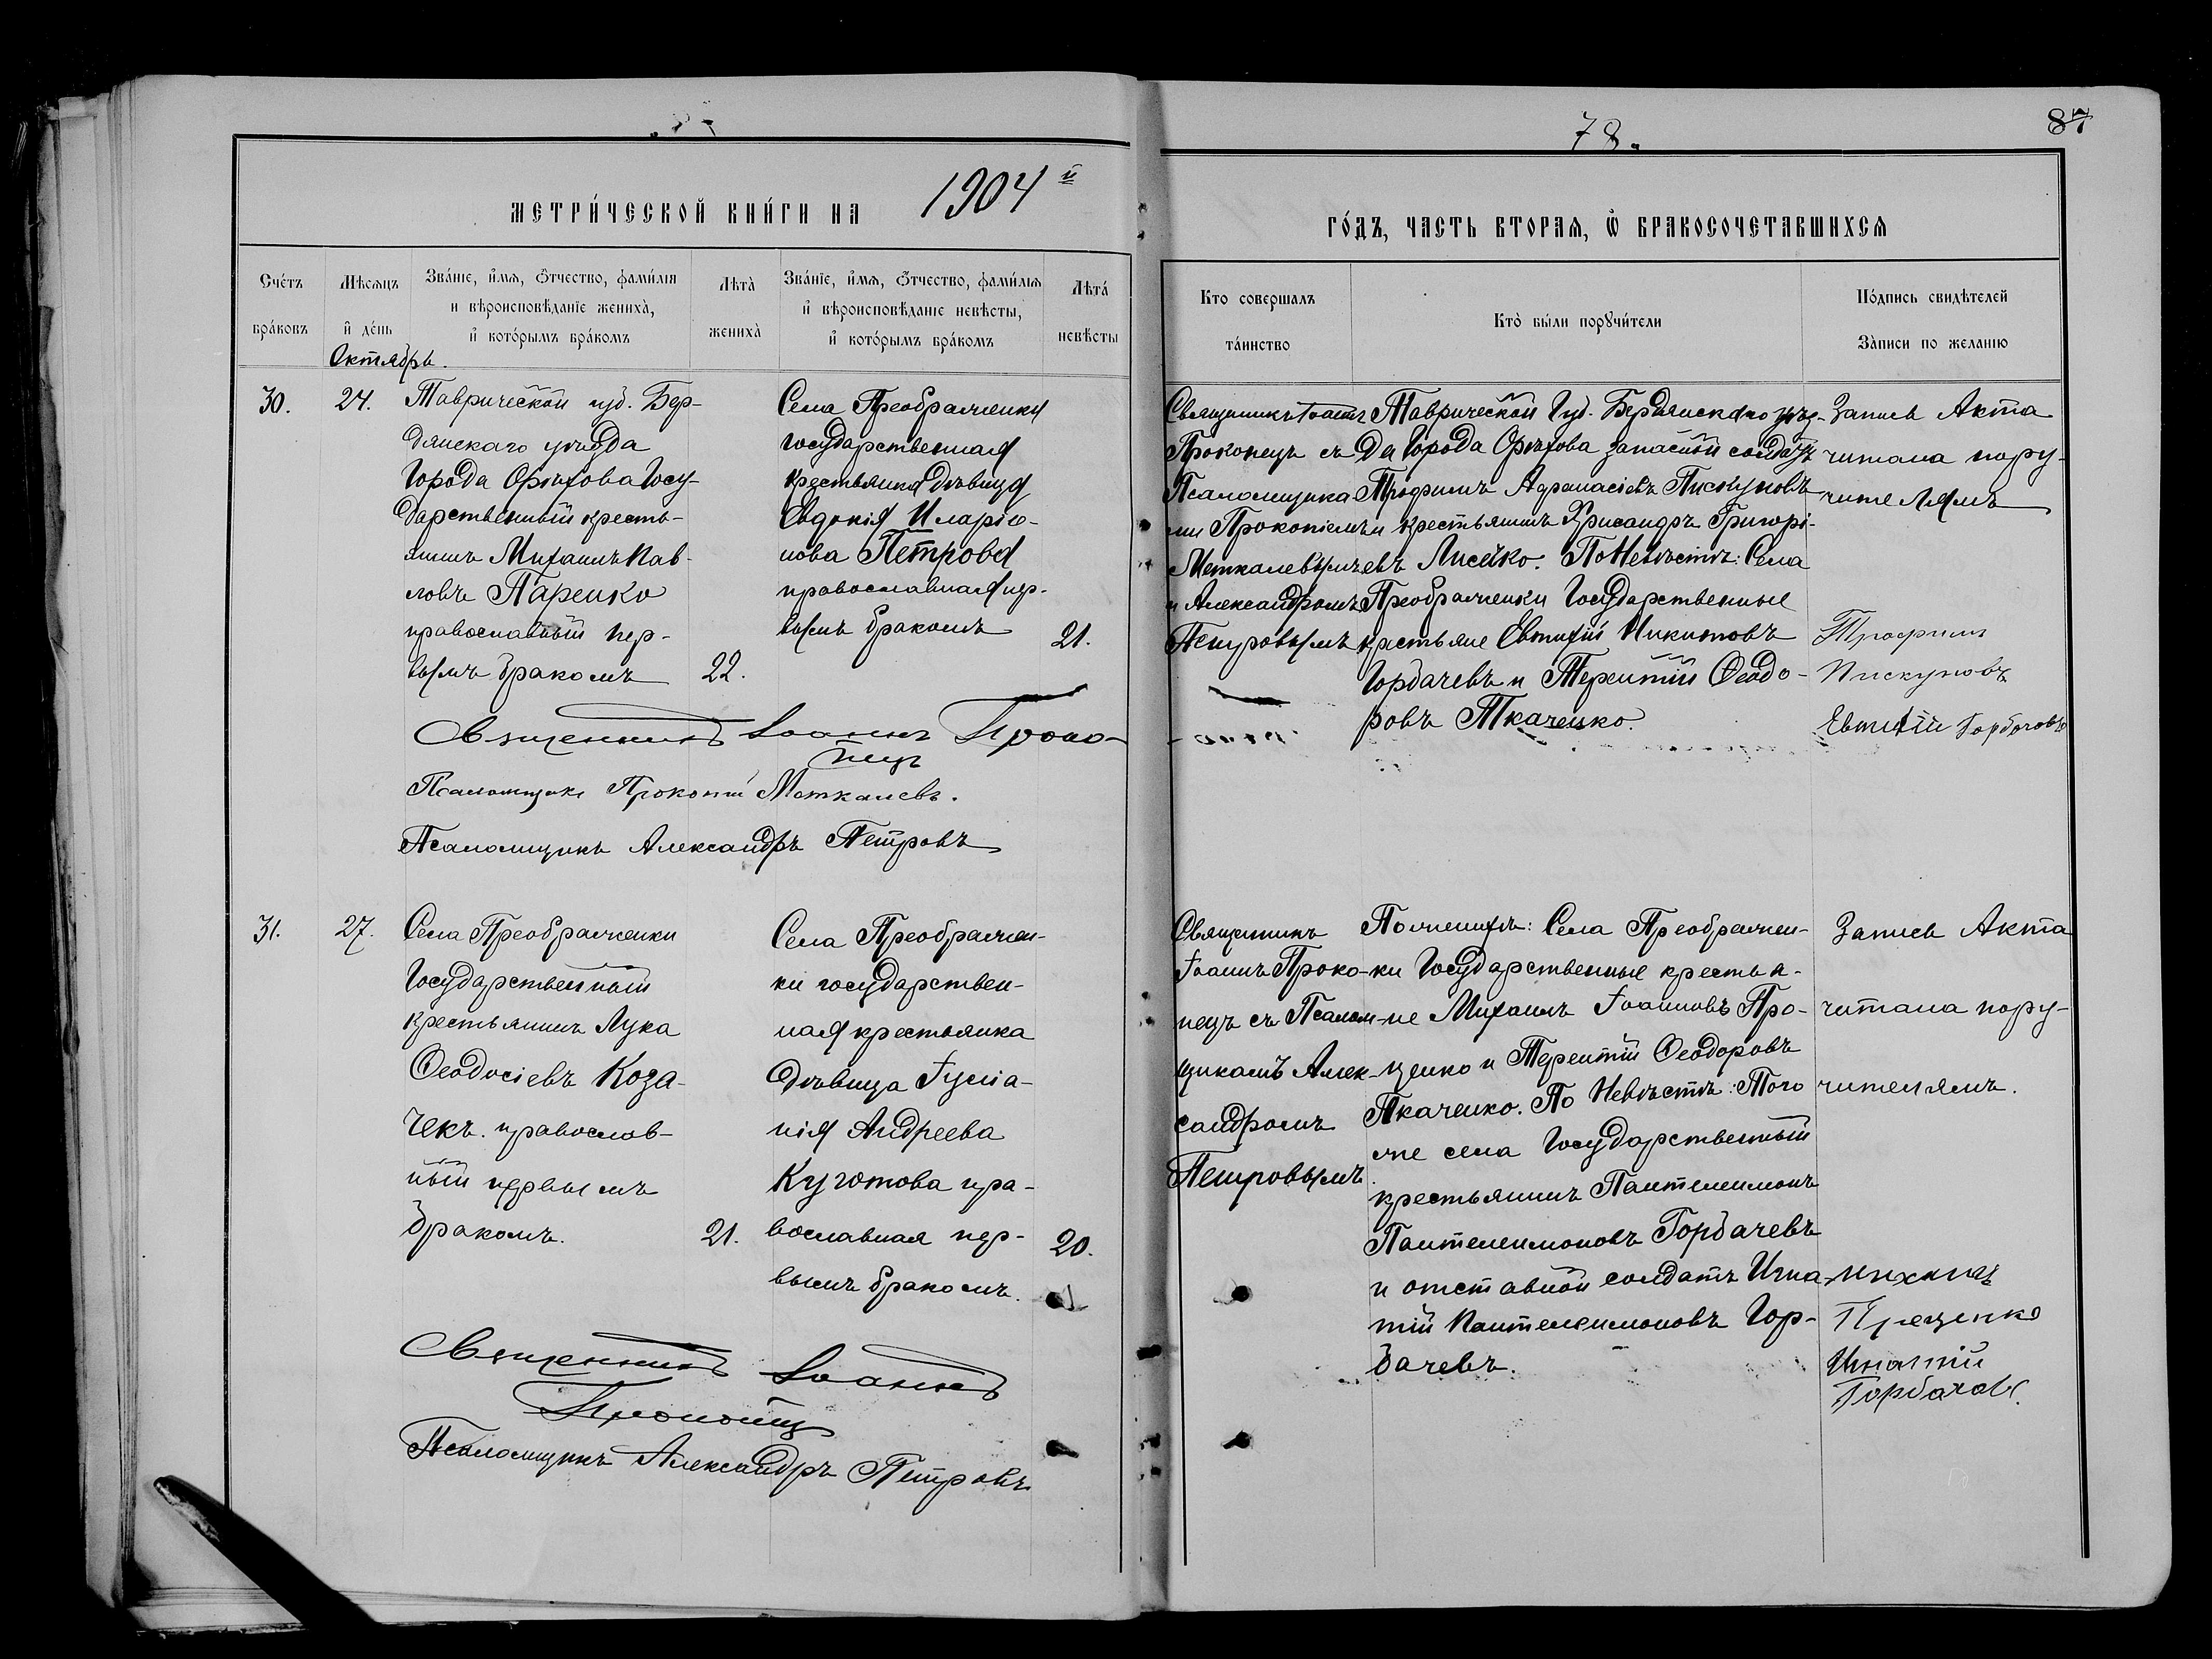 78.
87
МЕТРИ́ЧЕСКОЙ КНИ́ГИ НА 1904й
ГО́ДЪ, ЧАСТЬ ВТОРАЯ, Ѽ БРАКОСОЧЕТАВШИХСЯ
Сче́тъ бра́ковъ
Мѣсяцъ и҆ де́нь
Зва́нїе, и҆мя, ѻ҆́тчество, фами́лїя
и вѣроисповѣ́данїе жениха̀,
и҆ кото́рымъ бра́комъ
Лѣта̀ жениха̀
Зва́нїе, и҆мя, ѻ҆́тчество, фами́лїя
и҆ вѣроисповѣ́данїе невѣ́сты,
и҆ кото́рымъ бра́комъ
Лѣта́ невѣ́сты
Кто совершалъ та́инство
Кто̀ бы́ли порꙋчи́тели
По́дпись свидѣтелей
За̀писи по желанїю
Октябрь.
30.
24.
Таврической губ. Бер-
дянскаго уѣзда
Города Орѣхова Госу-
дарственный кресть-
янинъ Михаилъ Пав-
ловъ Паренко
православный пер-
вымъ бракомъ
22.
Села Преображенки
государственная
крестьянка дѣвица
Евдокія Иларіо-
нова Петрова
православная пер-
вымъ бракомъ
21.
Священникъ Іоаннъ
Прокопецъ съ
Псаломщика-
ми Прокопіемъ
Меткалевымъ
и Александромъ
Петровымъ
Таврической Губ. Бердянскаго уѣз-
да Города Орѣхова запасный солдатъ
Трофимъ Аѳанасіевъ Пискуновъ
и крестьянинъ Хрисанѳъ Григорі-
евъ Лисейко. По Невѣстѣ: Села
Преображенки Государственные
крестьяне Евтихій Никитовъ
Горбачевъ и Терентій Ѳеодо-
ровъ Ткаченко.
Запись Акта
читана пору-
чителямъ
Трофимъ
Пискуновъ
Евтихій Горбачовъ
Священникъ Іоаннъ Проко-
пецъ
Псаломщикъ Прокопій Меткалевъ.
Псаломщикъ Александръ Петровъ
31.
27.
Села Преображенки
Государственный
крестьянинъ Лука
Ѳеодосіевъ Коза-
чекъ. православ-
ный первымъ
бракомъ.
21.
Села Преображен-
ки государствен-
ная крестьянка
дѣвица Іуліа-
нія Андреева
Куготова пра-
вославная пер-
вымъ бракомъ.
20.
Священникъ
Іоаннъ Проко-
пецъ съ Псалом-
щикомъ Алек-
сандромъ
Петровымъ.
По женихѣ: Села Преображен-
ки Государственные крестья-
не Михаилъ Іоанновъ Про-
ценко и Терентій Ѳеодоровъ
Ткаченко. По Невѣстѣ: Того
же села Государственный
крестьянинъ Пантелеимонъ
Пантелеимоновъ Горбачевъ
и отставной солдатъ Игна-
тій Пантелеимоновъ Гор-
бачевъ.
Запись Акта
читана пору-
чителямъ.
Михаилъ
Проценко
Игнатій
Горбачовъ.
Священникъ Іоаннъ
Прокопецъ
Псаломщикъ Александръ Петровъ